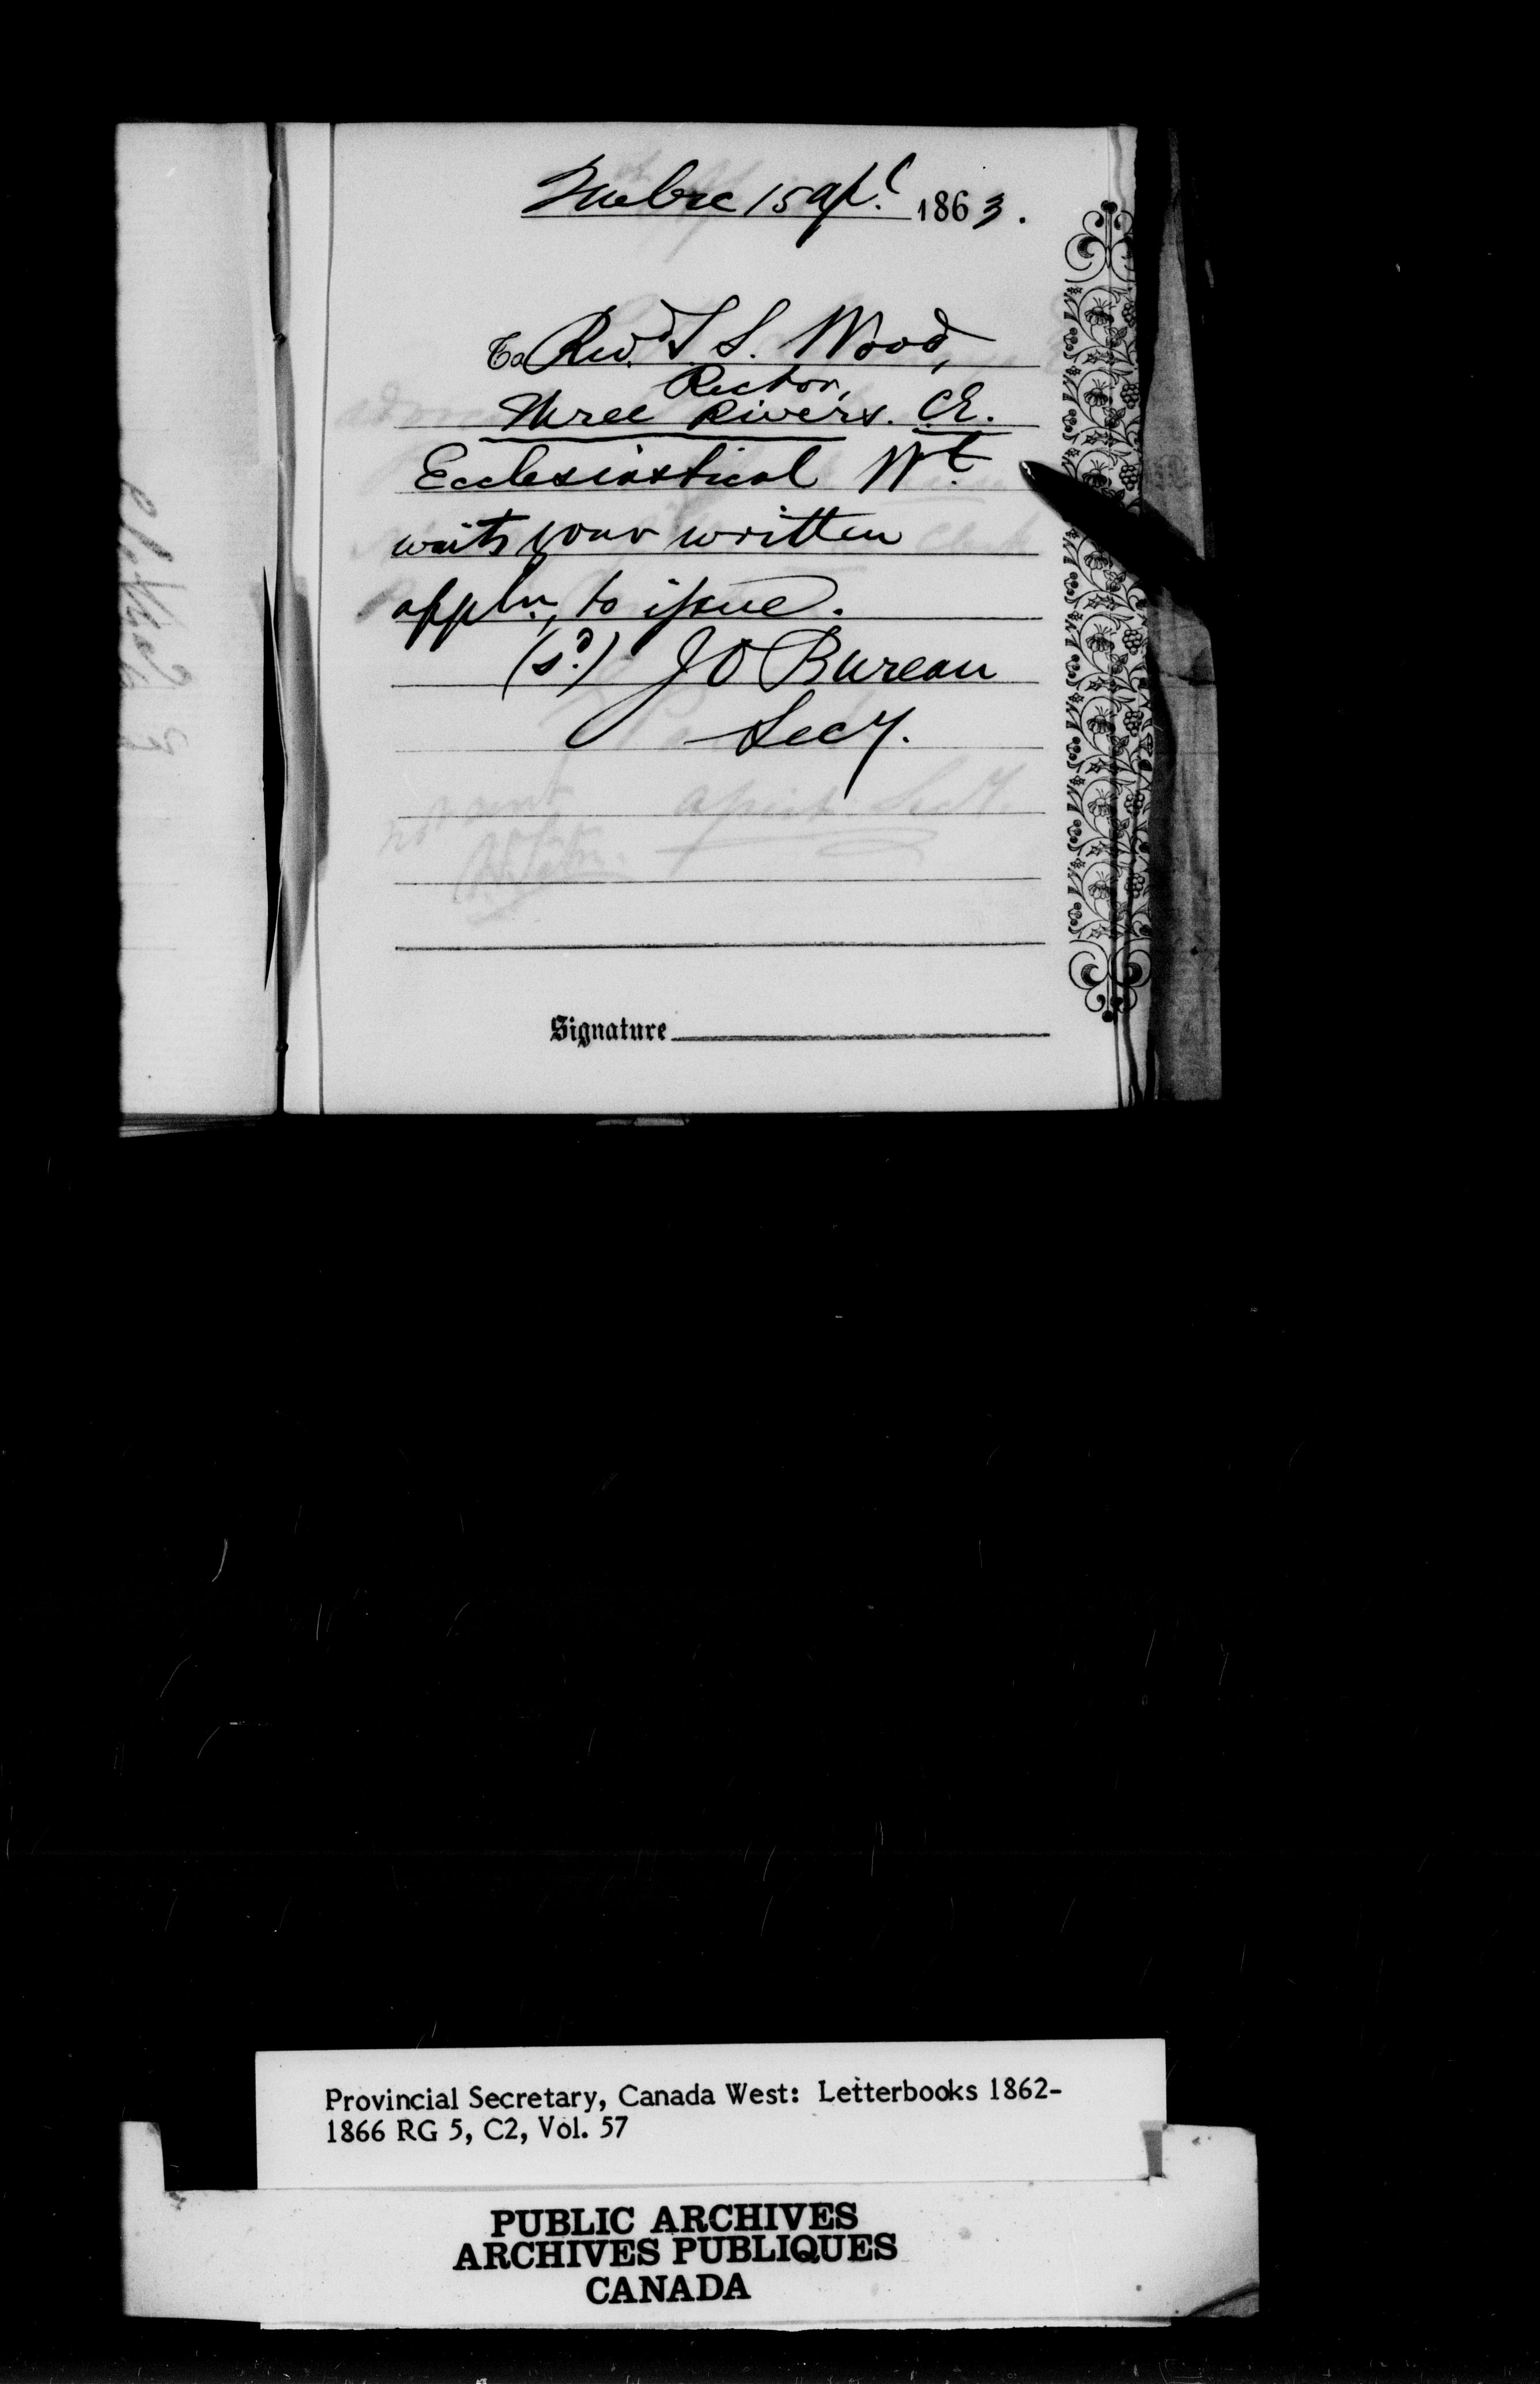 Quebec 15 Apl. 1863.
To Revd. S S. Wood,
Rector,
Three Rivers. C.E.
Ecclesiastical Wt.
waits your written
appln. to issue.
(sd.) J O Bureau
Secy.
Signature
Provincial Secretary, Canada West: Letterbooks 1862-
1866 RG 5, C2, Vol. 57
PUBLIC ARCHIVES
ARCHIVES PUBLIQUES
CANADA